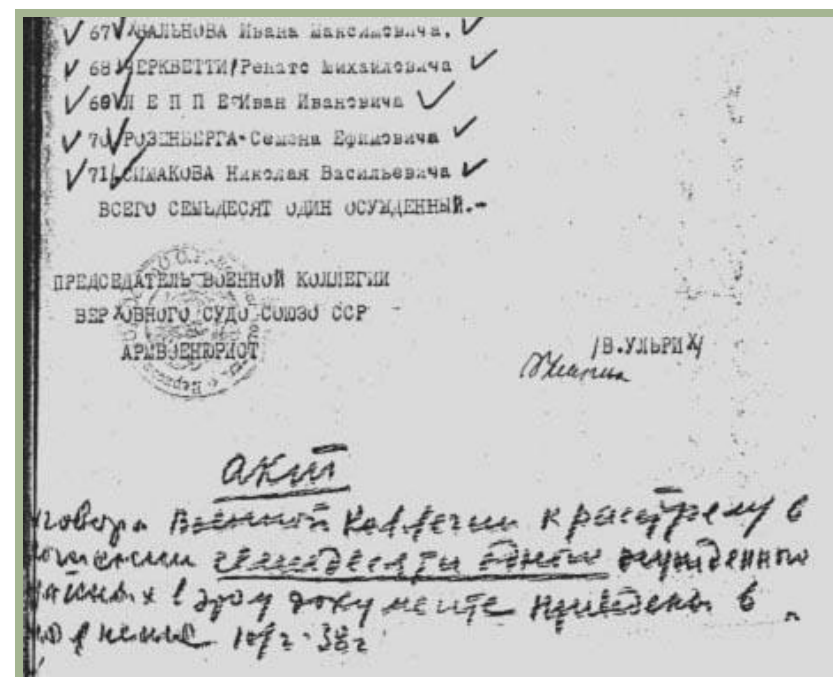 67 АВАЛЬНОВА Ивана Максимовича.
68 ЧЕРКВЕТТИ/Ренато Михайловича
69 Л Е П П Е-Иван Ивановича
70 РОЗЕНБЕРГА-Семена Ефимовича
71 СИМАКОВА Николая Васильевича
ВСЕГО СЕМЬДЕСЯТ ОДИН ОСУЖДЕННЫЙ.-
ПРЕДСЕДАТЕЛЬ ВОЕННОЙ КОЛЛЕГИИ
ВЕРХОВНОГО СУДО СОЮЗО ССР
АРМВОЕНЮРИСТ
/В.УЛЬРИХ/
акт
говора Военной Коллегии к расстрелу в
ношении семидесяти одного осужденных
этом документе приведены в